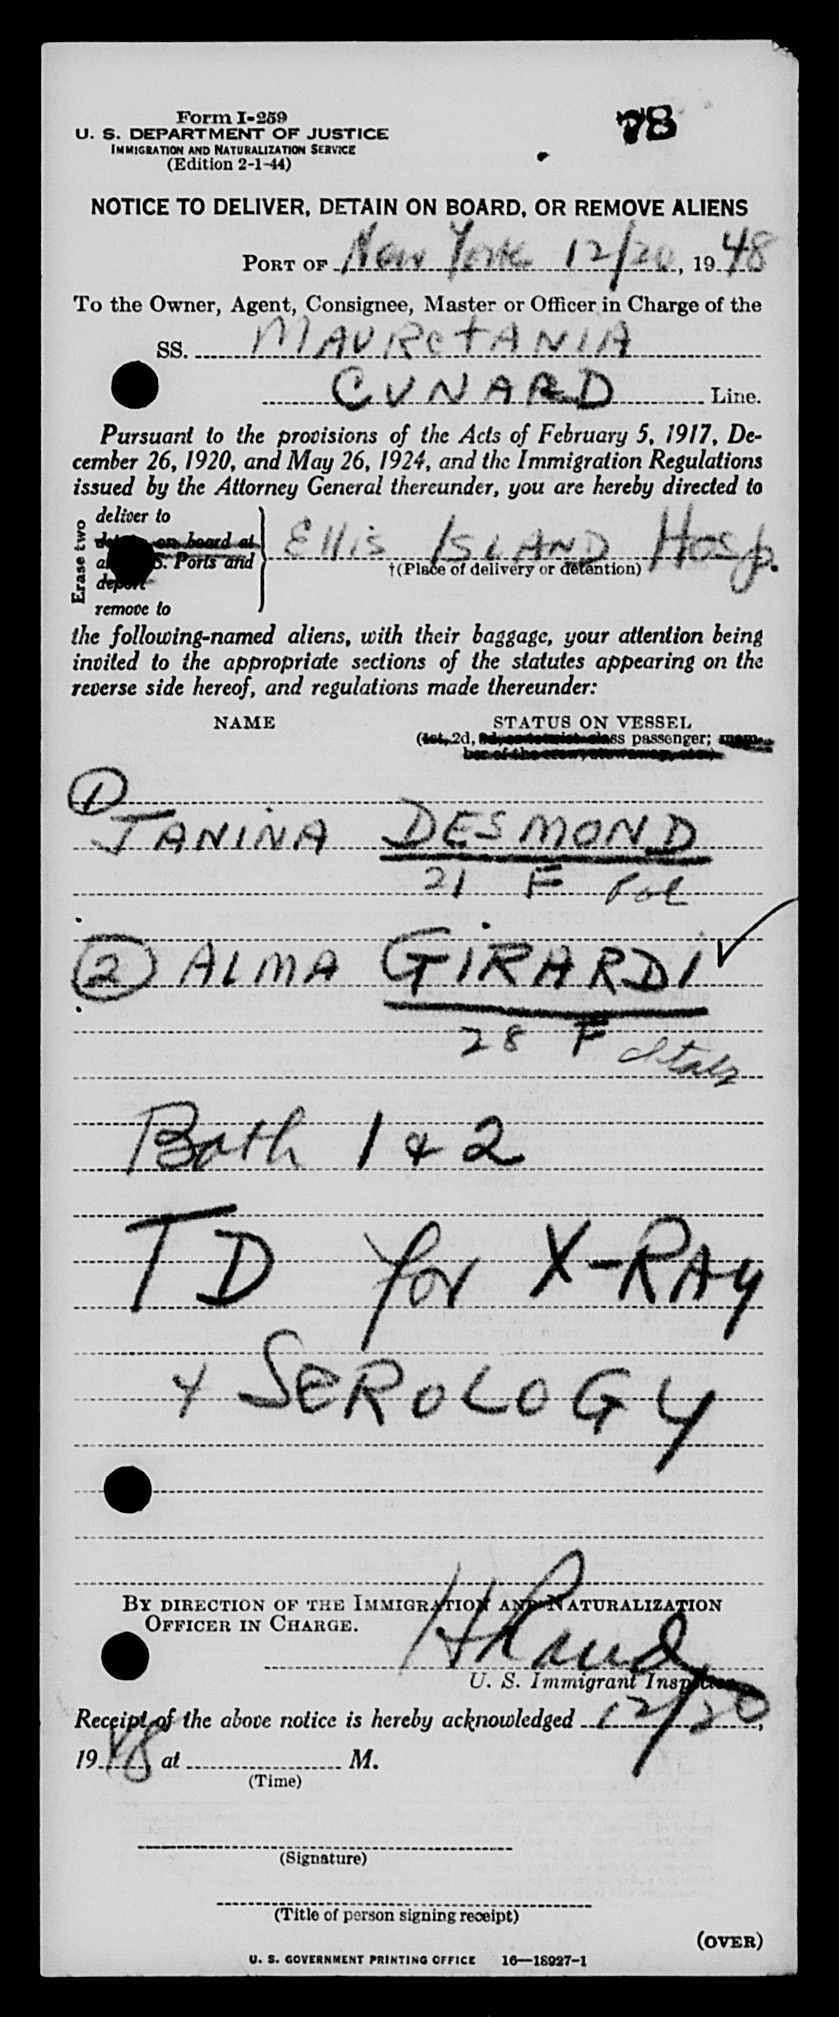 Form I-259
U. S. DEPARTMENT OF JUSTICE
IMMIGRATION AND NATURALIZATION SERVICE
(Edition 2-1-44)
78
NOTICE TO DELIVER, DETAIN ON BOARD, OR REMOVE ALIENS
PORT OF New York 12/20, 1948
To the Owner, Agent, Consignee, Master or Officer in Charge of the
SS. MAUREtANIA
CUNARD Line.
Pursuant to the provisions of the Acts of February 5, 1917, De-
cember 26, 1920, and May 26, 1924, and the Immigration Regulations
issued by the Attorney General thereunder, you are hereby directed to
Erase two
deliver to
on board at
S. Ports and
deport
remove to
Ellis ISLAND Hosp.
†(Place of delivery or detention)
the following-named aliens, with their baggage, your attention being
invited to the appropriate sections of the statutes appearing on the
reverse side hereof, and regulations made thereunder:
NAME STATUS ON VESSEL
(1st, 2d, passenger; mem-
ber of the crew,
1
JANINA DESMOND
21 F Pol
2 ALMA GIRARDI ✓
28 F Italy
Both 1 & 2
TD for X-RAy
& SEROLOGY
BY DIRECTION OF THE IMMIGRATION AND NATURALIZATION
OFFICER IN CHARGE.
U. S. Immigrant Inspector.
Receipt of the above notice is hereby acknowledged 12/20,
1948 at M.
(Time)
(Signature)
(Title of person signing receipt)
(OVER)
U. S. GOVERNMENT PRINTING OFFICE 16—18927-1